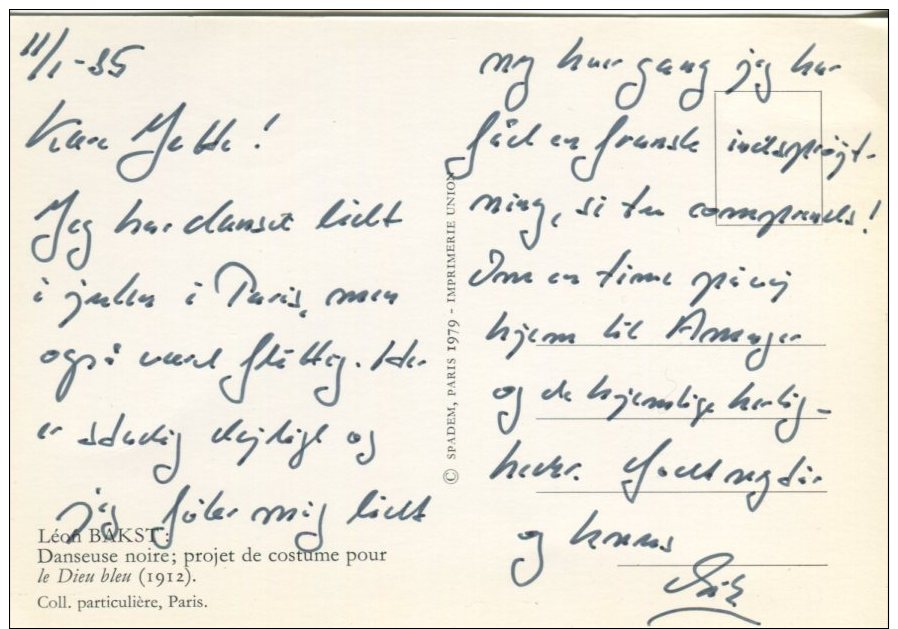 11/1-85
Kære Jette!
Jeg har danset lidt
i julen i Paris, men
også været flittig. Her
er stadig dejligt og
jeg føler mig lidt
ny hver gang jeg har
fået en fransk indsprøjt-
ning, si tu comprends!
Om en time på vej
hjem til Amager
og de hjemlige herlig-
heder. Godt nytår
og knus
© SPADEM, PARIS 1979 - IMPRIMERIE UNION
Léon BAKST :
Danseuse noire; projet de costume pour
le Dieu bleu (1912).
Coll. particulière, Paris.